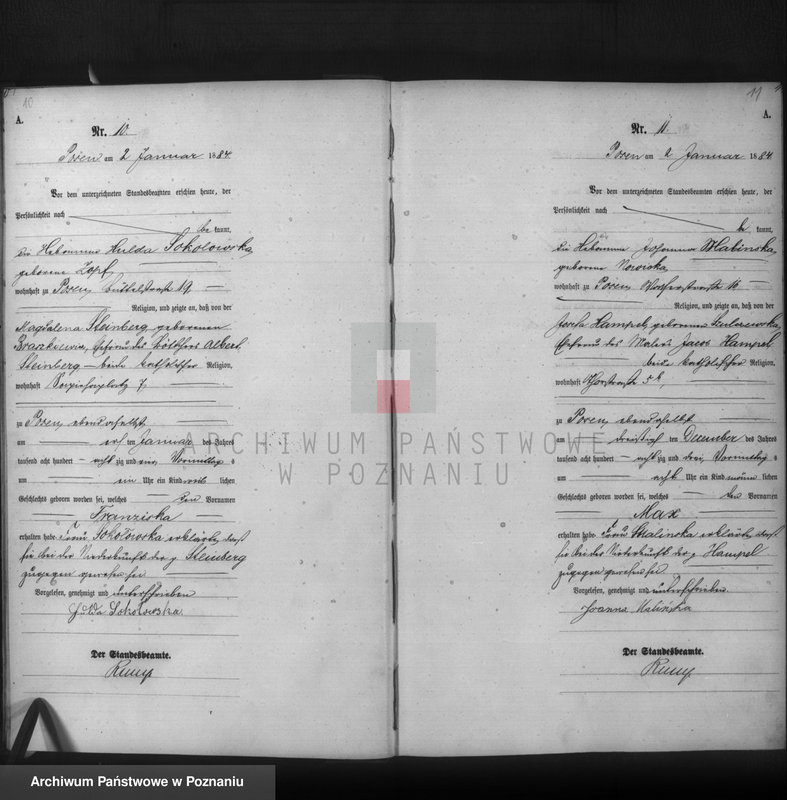 10
A.
Nr. 10
Posen am 2 Januar 1884
Vor dem unterzeichneten Standesbeamten erschien heute, der
Persönlichkeit nach
be kannt,
die Hebamme Hulda Sokolowska
geborene Zopf
wohnhaft zu Posen, Büttelstraße 19
Religion, und zeigte an, daß von der
Magdalena Steinberg geborenen
Ehefrau des Albert
Steinberg beide katholischer Religion,
wohnhaft Sapiehaplatz 7
zu Posen ebendaselbst
am ersten Januar des Jahres
tausend acht hundert achtzig und vier, Vormittag s
um ein Uhr ein Kind weib lichen
Geschlechts geboren worden sei, welches den Vornamen
Franziska
erhalten habe. Frau Sokolowska erklärte, daß
sie bei der Niederkunft der p. Steinberg
zugegen gewesen sei.
Vorgelesen, genehmigt und unterschrieben
Hulda Sokolowska.
Der Standesbeamte.
11
A.
Nr. 11
Posen am 2 Januar 1884
Vor dem unterzeichneten Standesbeamten erschien heute, der
Persönlichkeit nach
be kannt,
die Hebamme Johanna Malinska,
geborene Nowicka,
wohnhaft zu Posen,
Religion, und zeigte an, daß von der
Josefa Hampel, geborenen
Ehefrau des Malers Jacob Hampel
beide katholischer Religion,
wohnhaft
zu Posen ebendaselbst
am dreißigsten December des Jahres
tausend acht hundert achtzig und drei, Vormittag s
um acht Uhr ein Kind männ lichen
Geschlechts geboren worden sei, welches den Vornamen
Max
erhalten habe. Frau Malinska erklärte, daß
sie bei der Niederkunft der p. Hampel
zugegen gewesen sei.
Vorgelesen, genehmigt und unterschrieben
Joanna Malińska
Der Standesbeamte.
ARCHIWUM PAŃSTWOWE
W POZNANIU
Archiwum Państwowe w Poznaniu